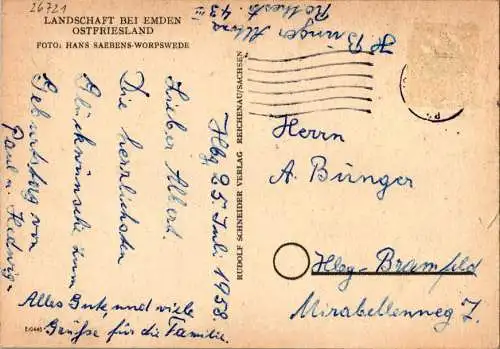 26721
LANDSCHAFT BEI EMDEN
OSTFRIESLAND
FOTO: HANS SAEBENS-WORPSWEDE
Hbg 25. Juli 1958.
Lieber Albert.
Die herzlichsten
Glückwünsche zum
Geburtstag von
Paul u. Hedwig.
Alles Gute, und viele
Grüße für die Familie.
E/0446
RUDOLF SCHNEIDER VERLAG REICHENAU/SACHSEN
43
Herrn
A. Bünger
Hbg-Bramfeld
Mirabellenweg 7.